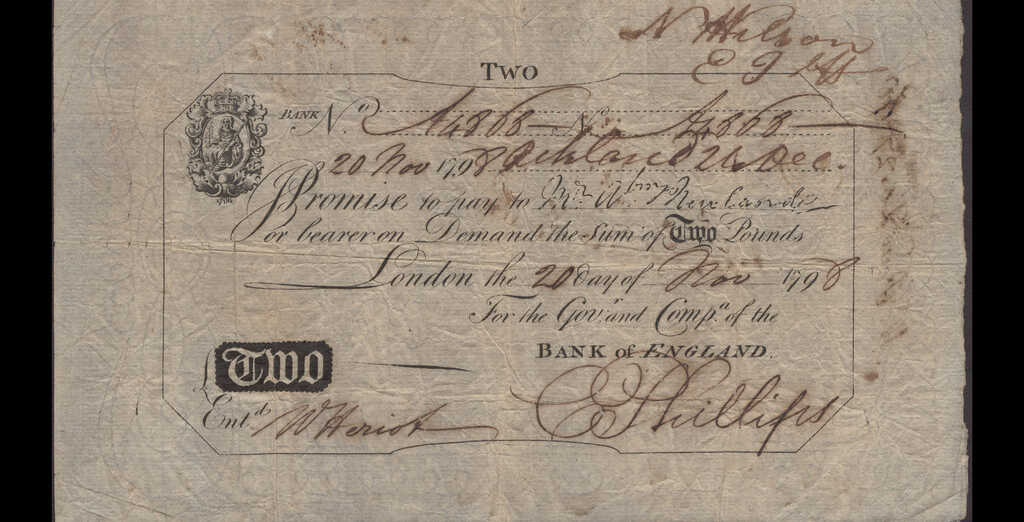 N Wilson
TWO
BANK N.o A4868 No A4868
20 Nov 1798 Dec.
Promise to pay to Mr. Abm. Newland
or bearer on Demand the Sum of Two Pounds
London the 20 day of Nov 1798
For the Gov.r and Comp.a of the
BANK of ENGLAND.
£ TWO
Ent.d W Heriot
E Phillips